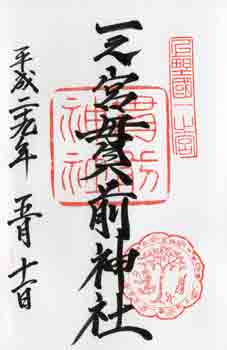 上野國一之宮
一之宮貫前神社
貫前神社
平成二十九年 五月 十一日